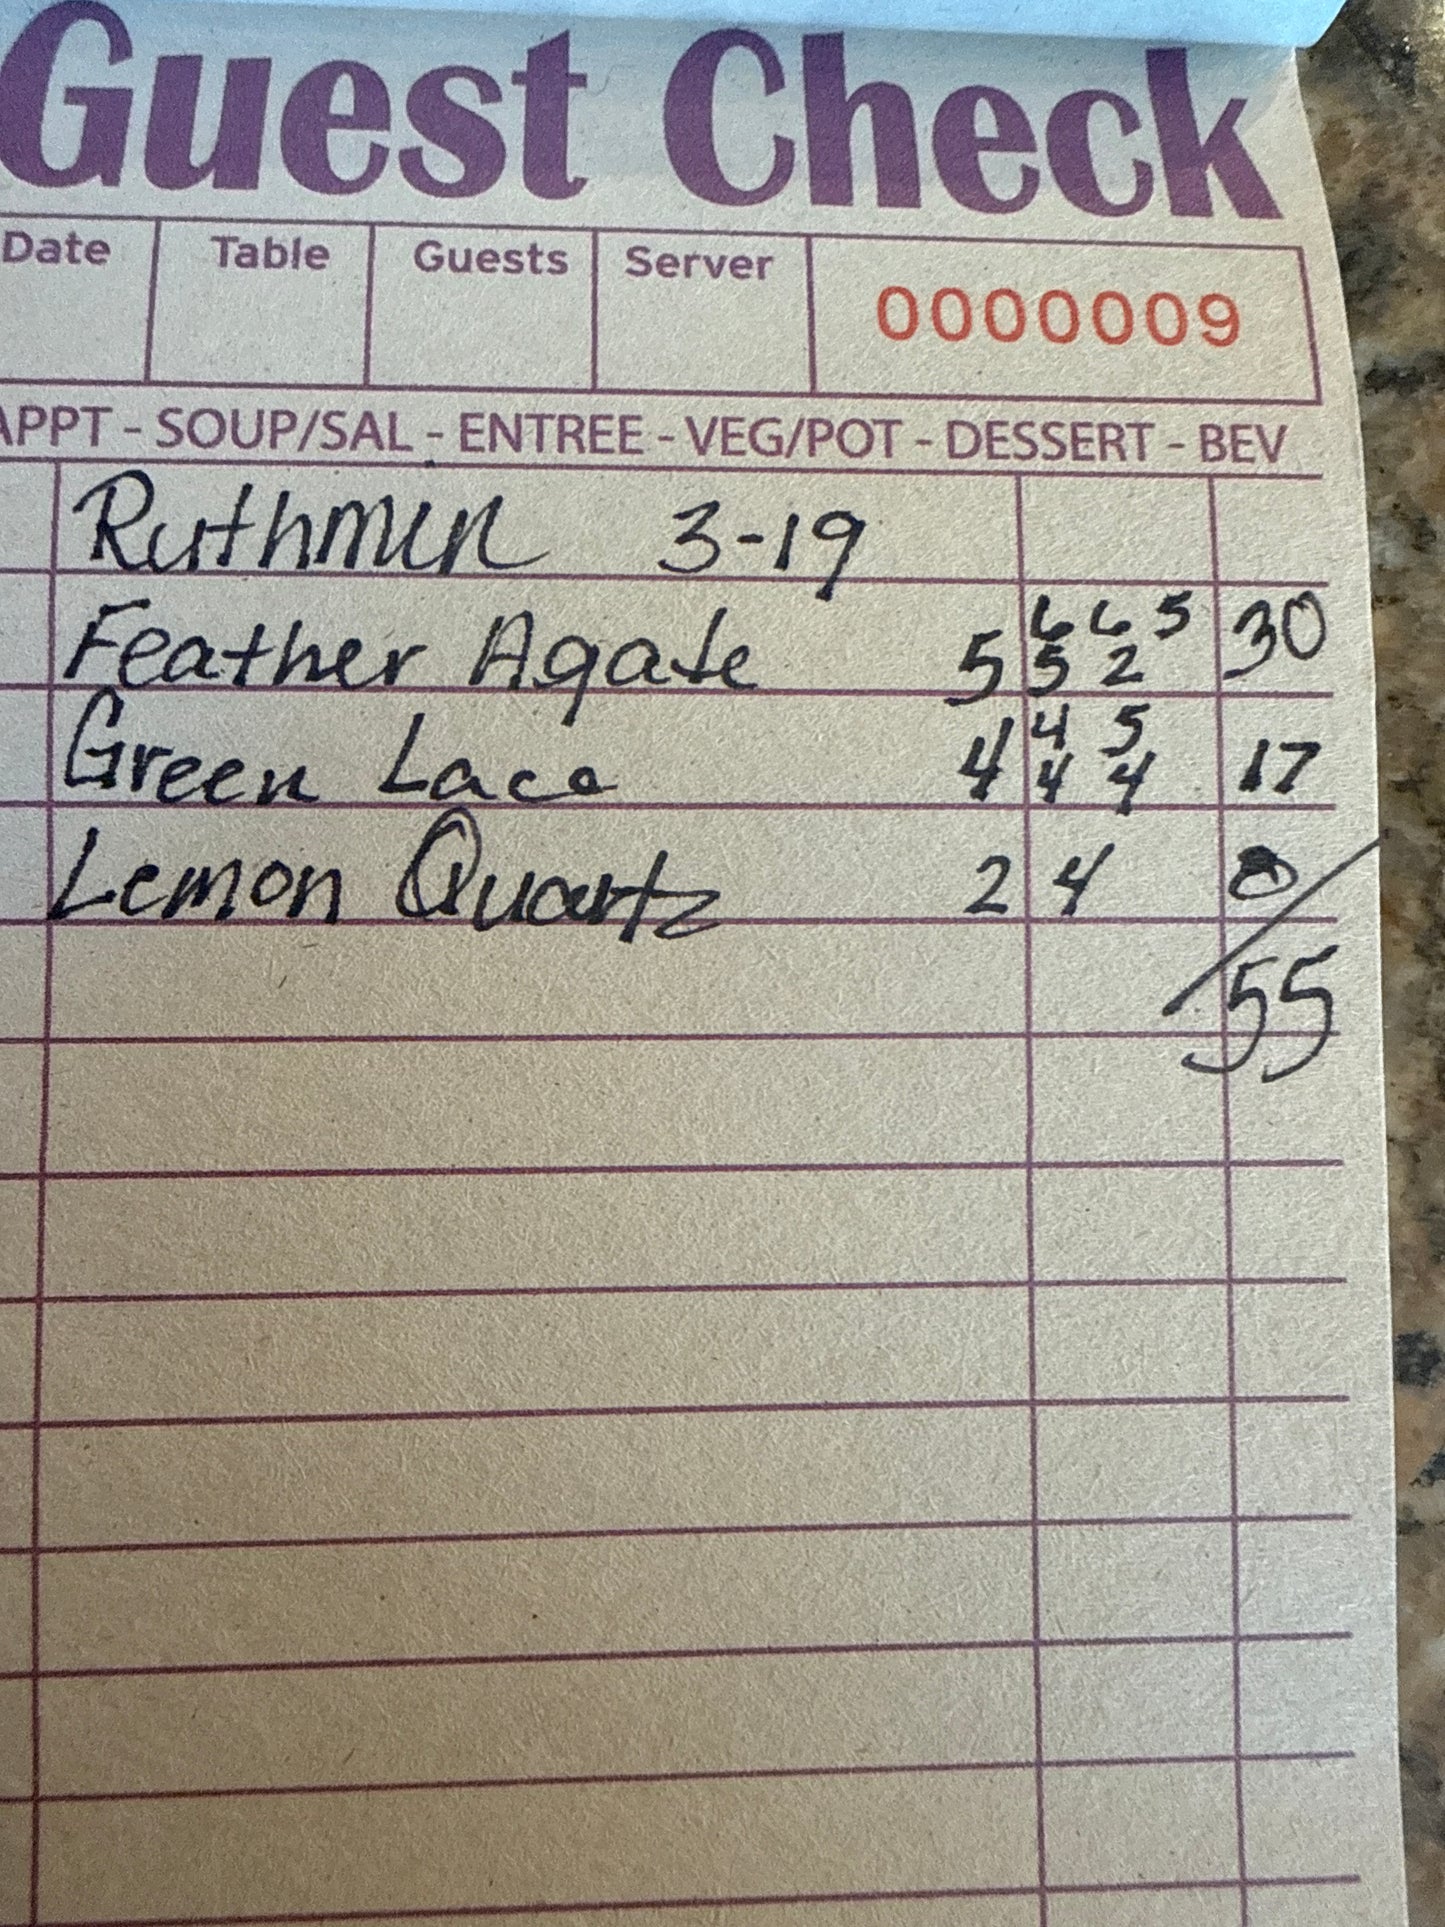 Guest Check
Date Table Guests Server 0000009
APPT - SOUP/SAL - ENTREE - VEG/POT - DESSERT - BEV
3-19
Feather Agate 5 6 6 5 5 2 30
Green Lace 4 4 5 4 4 17
Lemon Quartz 2 4 8
55